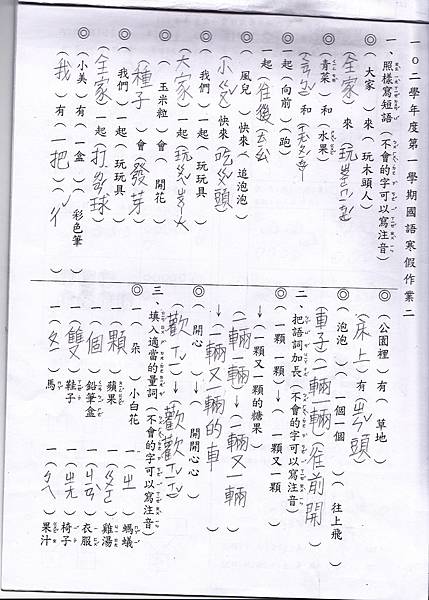 一０二學年度第一學期國語寒假作業二
一、照樣寫短語(不會的字可以寫注音)
◎(大家)來(玩木頭人)
(全家)來(玩)
◎(青菜)和(水果)
( )和( )
◎一起(向前)(跑)
一起(往後)( )
◎(風兒)快來(追泡泡)
(小ㄍㄡˇ)快來(吃ㄍㄨˇ頭)
◎(我們)一起(玩玩具)
(大家)一起(玩)
◎(玉米粒)會(開花)
(種子)會(發芽)
◎(我們)一起(玩玩具)
(全家)一起(打ㄌㄢˊ球)
◎(小美)有(一盒)(彩色筆)
(我)有(一把)(ㄔˇ)
◎(公園裡)有(草地)
(床上)有(ㄓㄣˇ頭)
◎(泡泡)(一個一個)(往上飛)
(車子)(一輛一輛)(往前開)
二、把語詞加長(不會的字可以寫注音)
◎(一顆一顆)→(一顆又一顆)
→(一顆又一顆的糖果)
(一輛一輛)→(一輛又一輛)
→(一輛又一輛的車)
◎(開心)→(開開心心)
(歡ㄒㄧˇ)→(歡歡ㄒㄧˇㄒㄧˇ)
三、填入適當的量詞(不會的字可以寫注音)
◎一(朵)小白花
一(顆)蘋果 一(ㄓ)螞蟻
一(個)鉛筆盒 一(ㄨㄢˇ)雞湯
一(雙)鞋子 一(ㄐㄧㄢˋ)衣服
一( )馬 一(ㄓㄤ)椅子
一(ㄟ)果汁